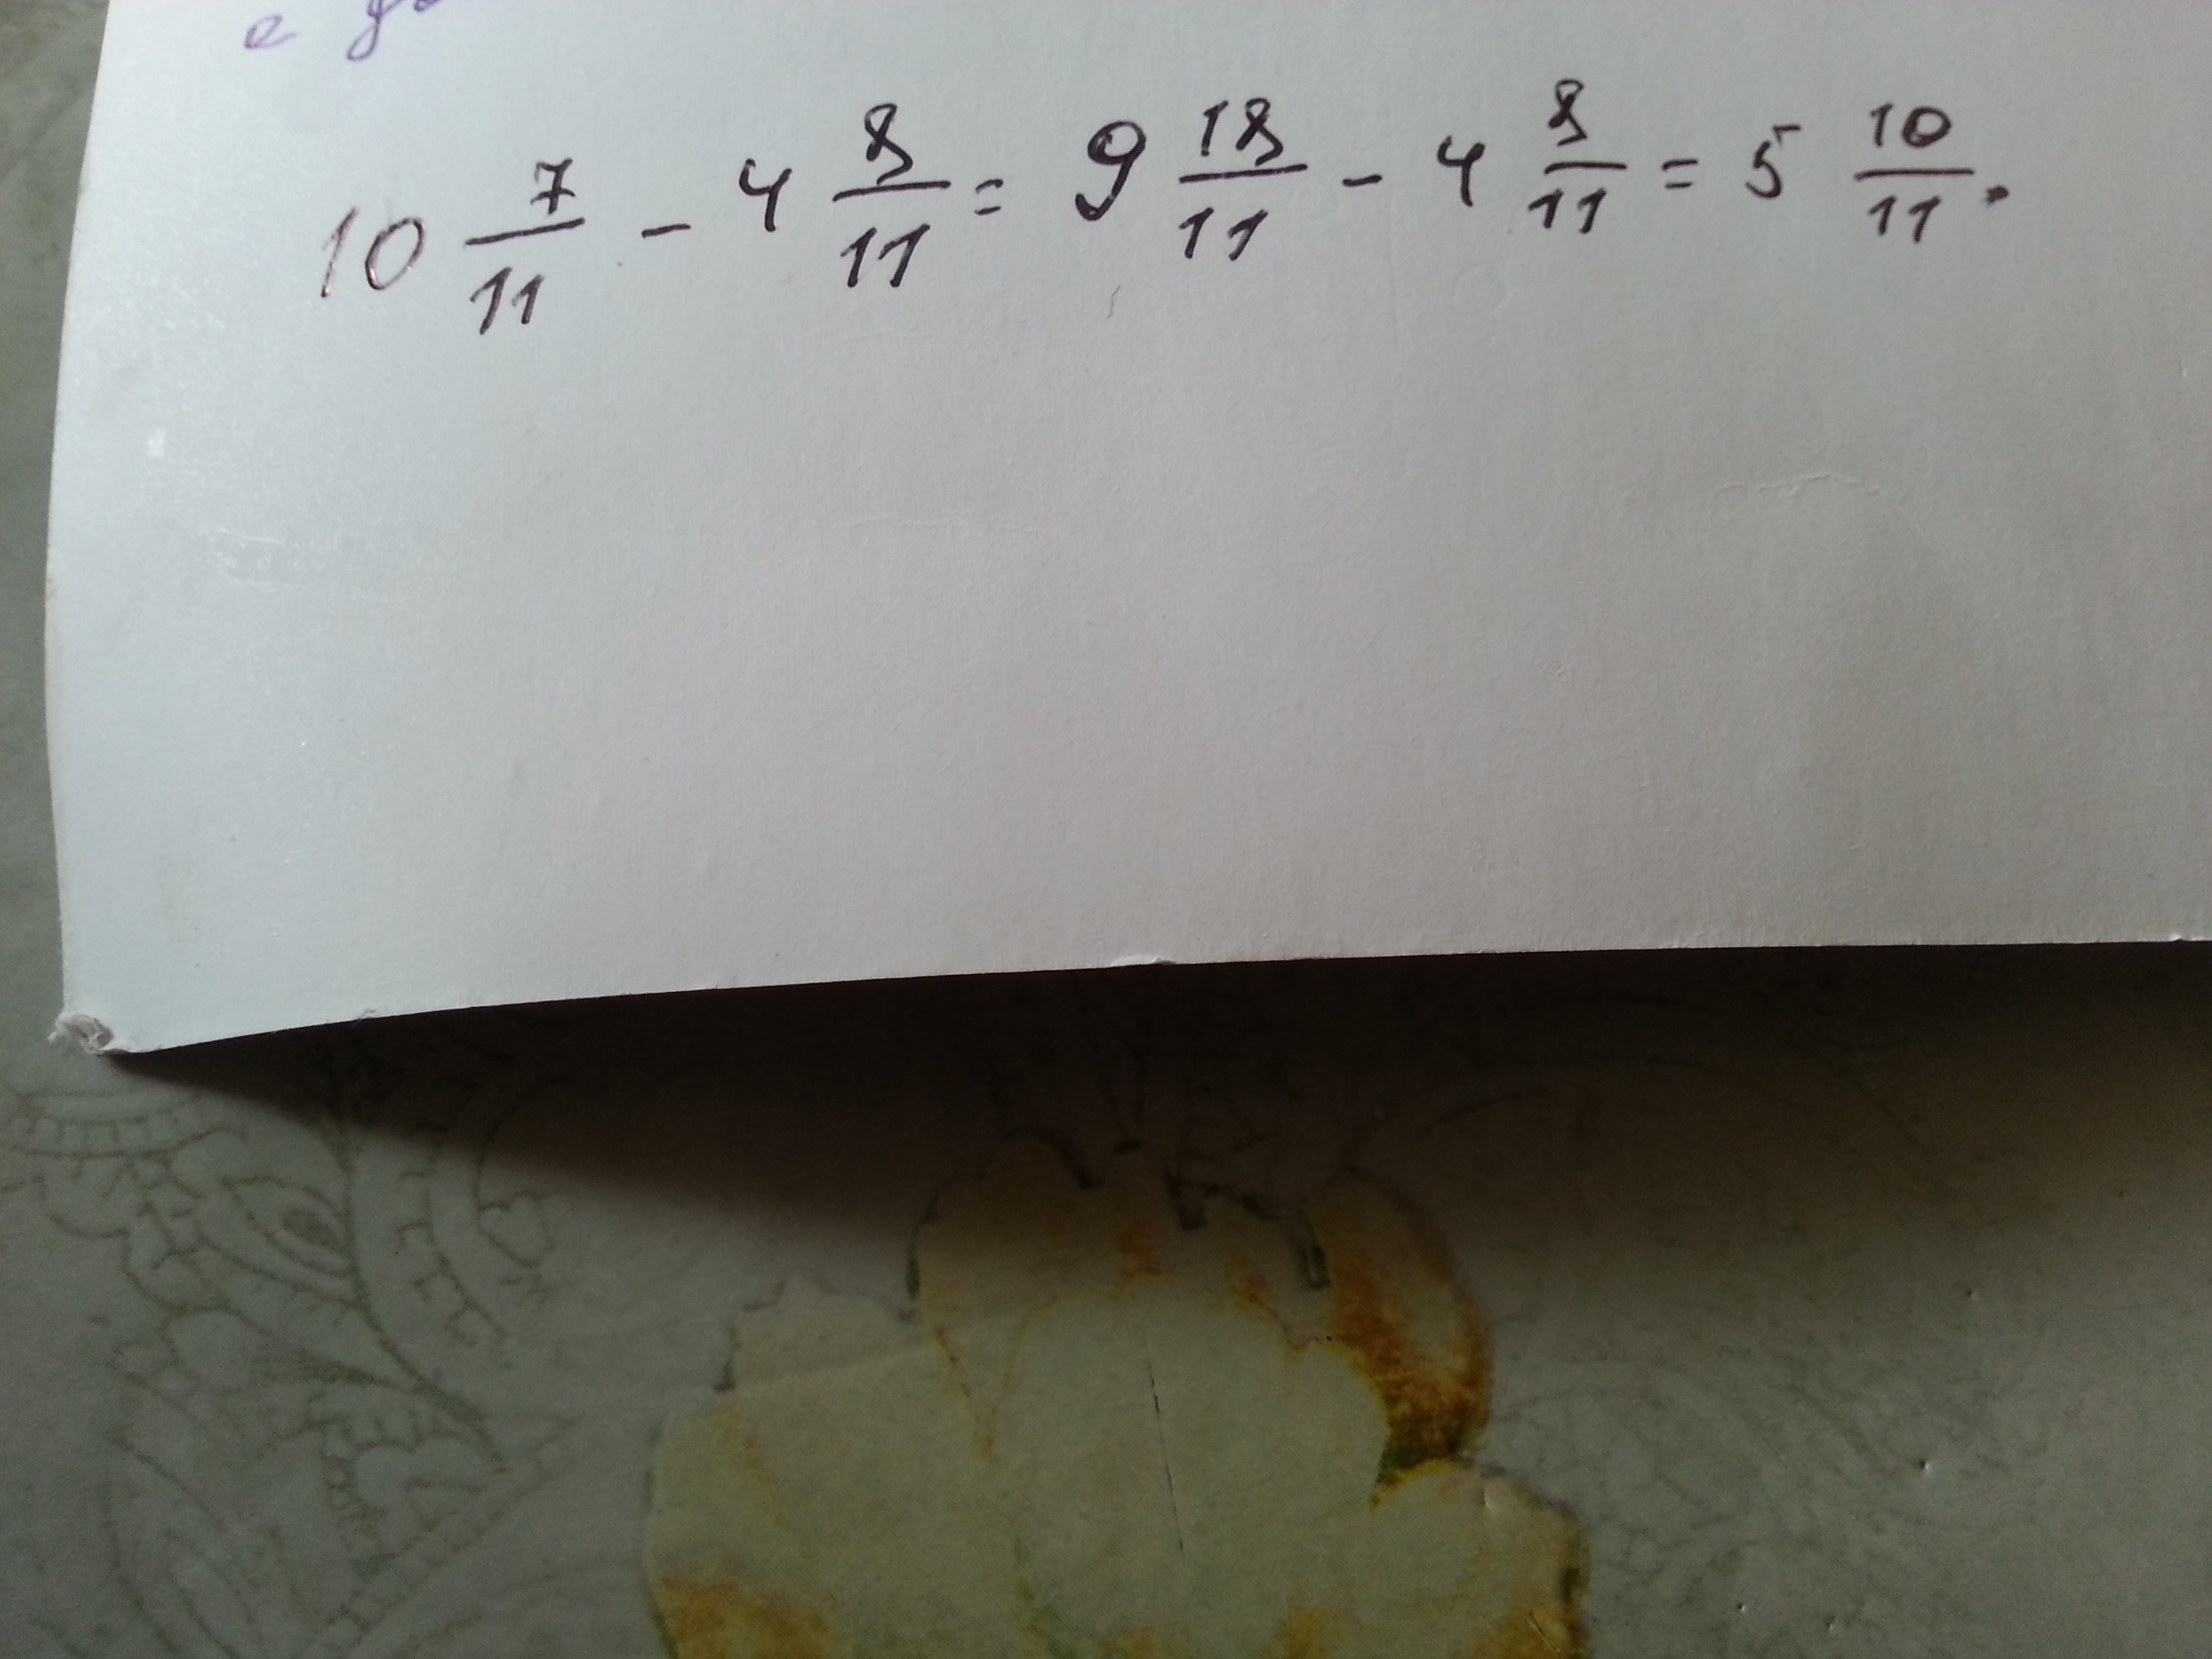 10 7/11 - 4 8/11 = 9 18/11 - 4 8/11 = 5 10/11.